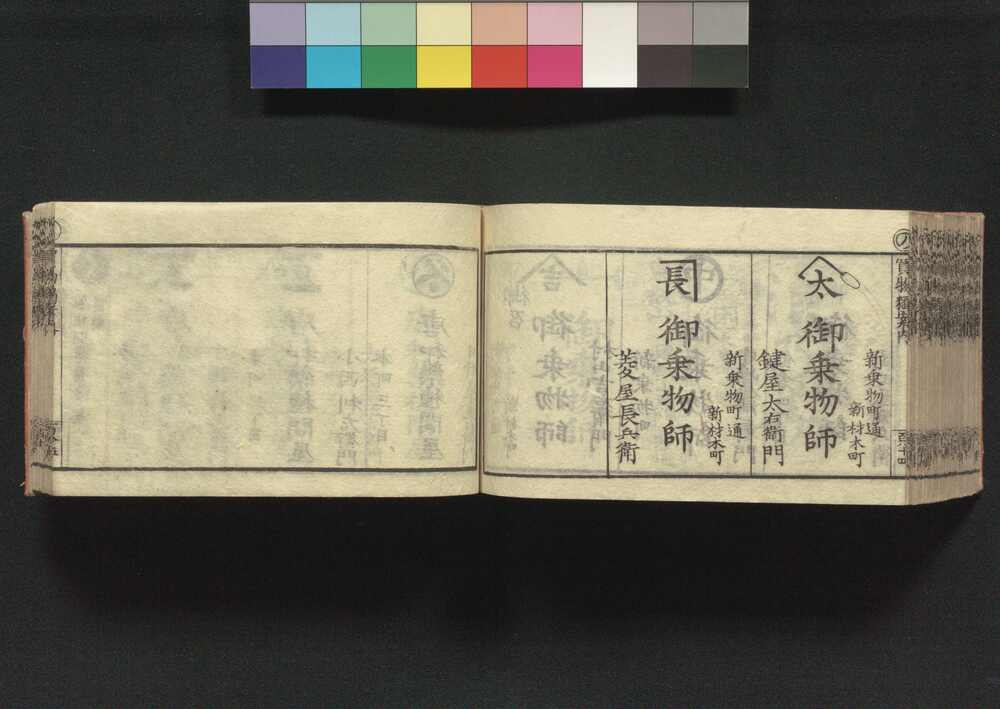 買物獨案内
百十四
太
新乗物町通
新材木町
御乗物師
鍵屋太右衛門
長
新乗物町通
新材木町
御乗物師
菱屋長兵衛